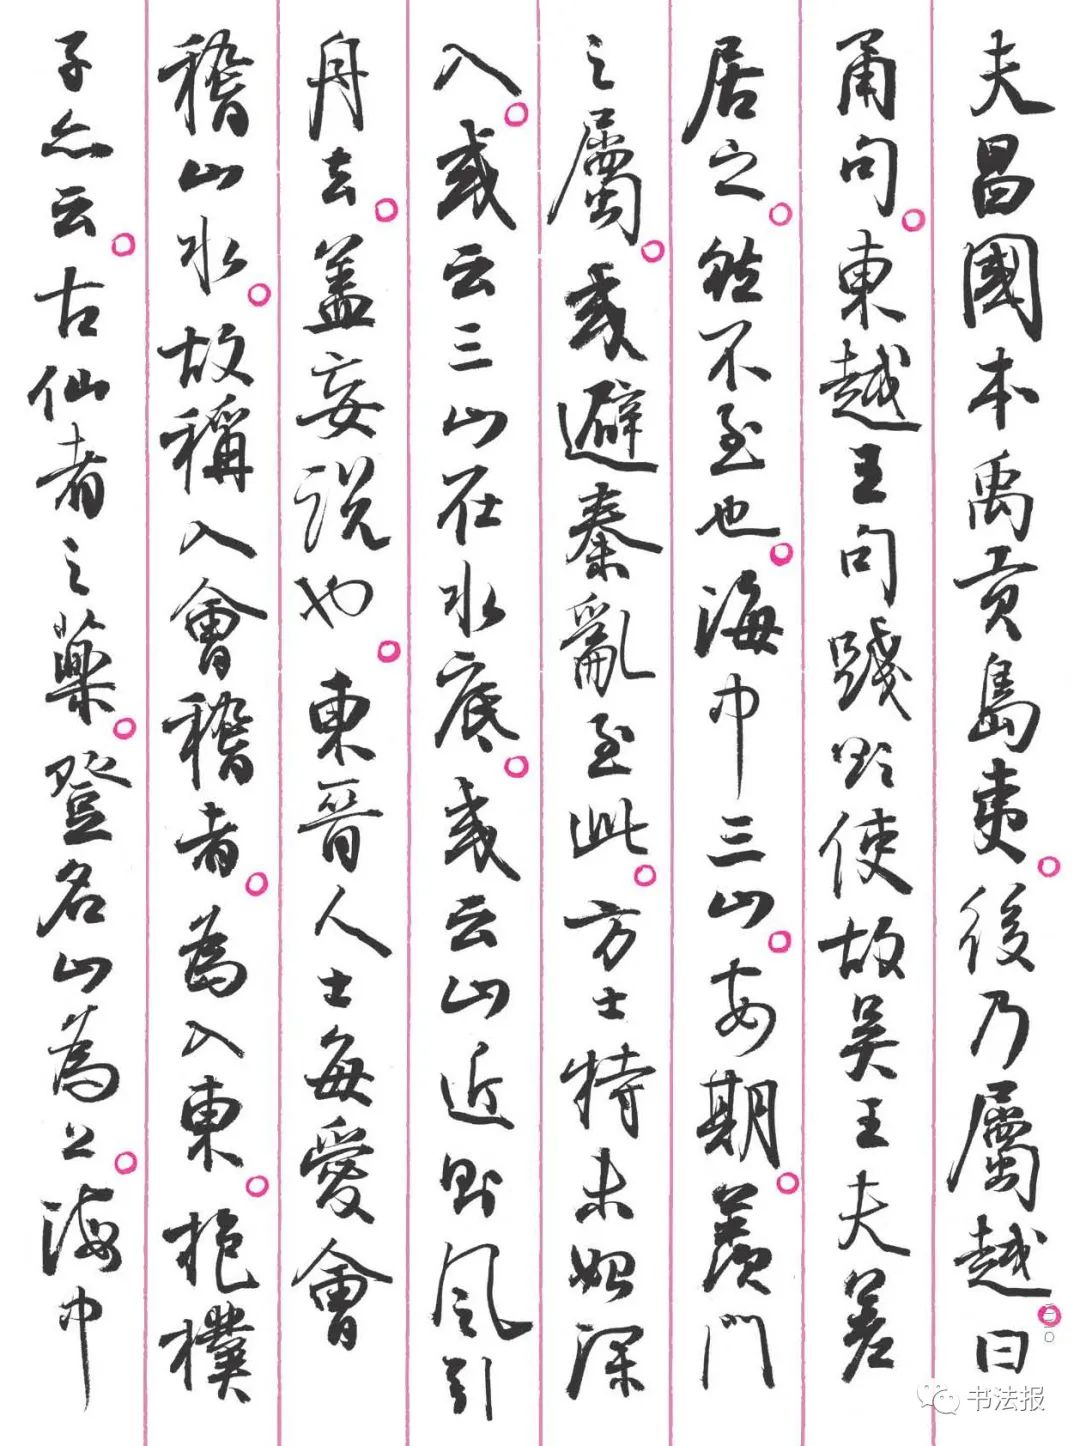 夫昌國本禹貢島夷。後乃屬越。曰
甬句。東越王句踐欲使故吳王夫差
居之。然不至也。海中三山。安期。羨門
之屬。或避秦亂至此。方士特未始深
入。或云三山在水底。或云山近則風引
舟去。盖妄說也。東晉人士每愛會
稽山水。故稱入會稽者。為入東。抱樸
子亦云。古仙者之藥。登名山為上。海中
书法报